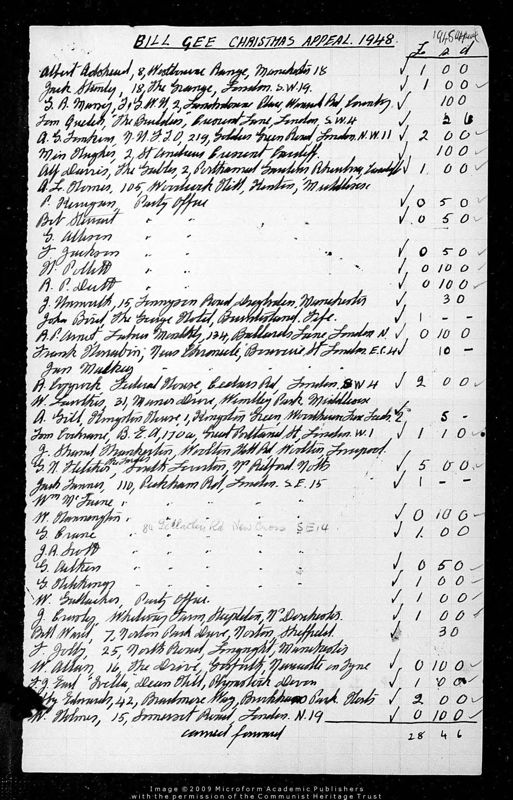 BILL GEE CHRISTMAS APPEAL. 1948.
1948 Appeal
£ s d
Albert Adshead, 8, Westbourne Range, Manchester 18 ✓ 1 0 0
Jack Stanley, 18, The Grange, London. S.W.19. ✓ 1 0 0
10 0
Tom Quelch, "The Builder", Crescent Lane, London, S.W.4 ✓ 2 6
A. G. Tomkins, N.U.F.T.O, 219, Golders Green Road, London, N.W.11 ✓ 2 0 0
Min Hughes, 2, St Andrews Crescent Cardiff. 10 0
Alf Davies, The Gables, 2, ✓ 1. 0 0
A. L. Horner, 105, Hill, Kenton, Middlesex
P. Kerrigan, Party Office ✓ 0 5 0
Bob Stewart " " ✓ 0 5 0
G. Allison " "
T. Jackson " " ✓ 0 5 0
H. Pollitt " " ✓ 0 10 0
R. P. Dutt " " ✓ 0 10 0
J. 15, Tennyson Road, Droylsden, Manchester ✓ 3 0
John Bird, The George Hotel, Burntisland. Fife. ✓ 1 - -
R. P. Arnot, Labour Monthly, 134, Ballards Lane, London N. ✓ 0 10 0
Frank Horrabin, News Chronicle, Bouverie St London E.C.4 ✓ 10 -
" " "
Federal House, Cedars Rd, London. S.W.4 ✓ 2 0 0
W. Lawther, 31, Manor Drive, Wembley Park Middlesex
A. Gill, House 1, Green 5 -
Tom Cochrane, B.E.A, 170a, Great Portland St, London. W.1 ✓ 1 0
J. Woolton Hill Rd Woolton, Liverpool.
G. H. Fletcher, South Nr Retford. Notts ✓ 5 0 0
Jack Tanner, 110, Peckham Rd, London. S.E.15 ✓ 1 - -
Wm " " " "
W. Hannington " " " " ✓ 0 10 0
G. Crane 84 Rd New Cross S.E.14 ✓ 1. 0 0
J. R. Scott " " " "
G. Aitken " " " " ✓ 0 5 0
G. " " " " ✓ 1 0 0
W. Gallacher, Party Office. ✓ 1 0 0
J. Crowley, Farm, Nr Dorchester. ✓ 1 0 0
Bill Ward, 7, Norton Park Drive, Norton, Sheffield. ✓ 3 0
F. Jolly, 25, North Road, Longsight, Manchester
W. Allan, 16, The Drive, Gosforth, Newcastle on Tyne ✓ 0 10 0
Dean Hill, Plymstock Devon ✓ 1 0 0
Edwards, 42, Way, Park Herts ✓ 2 0 0
W. Holmes, 15, Somerset Road, London. N.19 ✓ 0 10 0
carried forward 28 4 6
Image ©2009 Microform Academic Publishers
with the permission of the Communist Heritage Trust